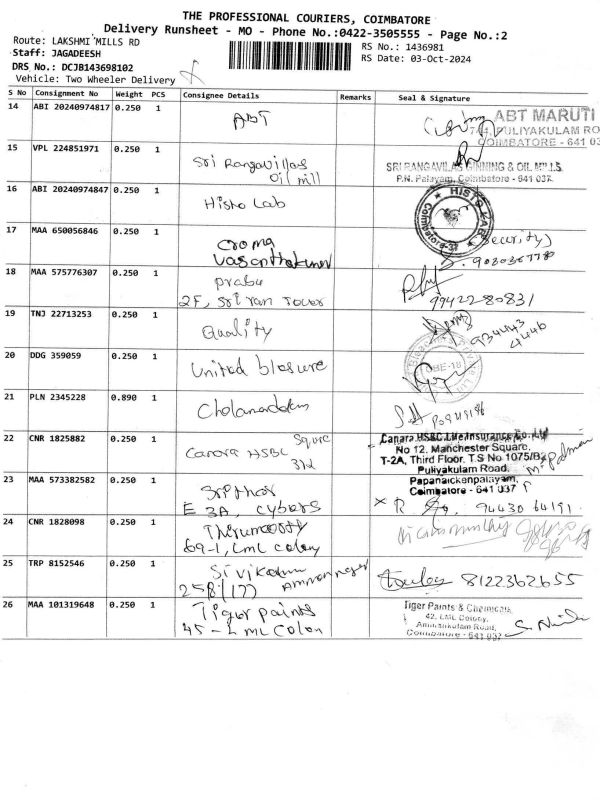 THE PROFESSIONAL COURIERS, COIMBATORE
Delivery Runsheet - MO - Phone No.:0422-3505555 - Page No.:2
Route: LAKSHMI MILLS RD
RS No.: 1436981
Staff: JAGADEESH
RS Date: 03-Oct-2024
DRS No.: DCJB143698102
Vehicle: Two Wheeler Delivery
S No Consignment No Weight PCS Consignee Details Remarks Seal & Signature
14 ABI 20240974817 0.250 1 ABT
ABT MARUTI
PULIYAKULAM RO
COIMBATORE - 641 0
15 VPL 224851971 0.250 1 Sri Rangavillas
Oil mill
SRI RANGAVILAS GINNING & OIL MILLS
P.N. Palayam, Coimbatore - 641 037.
16 ABI 20240974847 0.250 1 Histo Lab
HISTO LAB
Coimbatore
17 MAA 650056846 0.250 1 Croma
Vasanthakumar
(Security)
18 MAA 575776307 0.250 1 prabu
2F, Sri ran Tower
9942280831
19 TNJ 22713253 0.250 1 Quality
934443
4446
20 DDG 359059 0.250 1 United
21 PLN 2345228 0.890 1
22 CNR 1825882 0.250 1 Canara HSBC
Canara HSBC Life Insurance Co. Ltd
No 12, Manchester Square,
T-2A, Third Floor, T.S No 1075/B
Puliyakulam Road,
Papanaickenpalayam,
Coimbatore - 641 037
23 MAA 573382582 0.250 1 Sridhar
E 3A, Cybers
R 94430 64191
24 CNR 1828098 0.250 1
69-1, LML Colony
25 TRP 8152546 0.250 1
8122362655
26 MAA 101319648 0.250 1 Tiger paints
45 - LML Colon
Tiger Paints & Chemicals,
42, LML Colony,
Coimbatore - 641 037